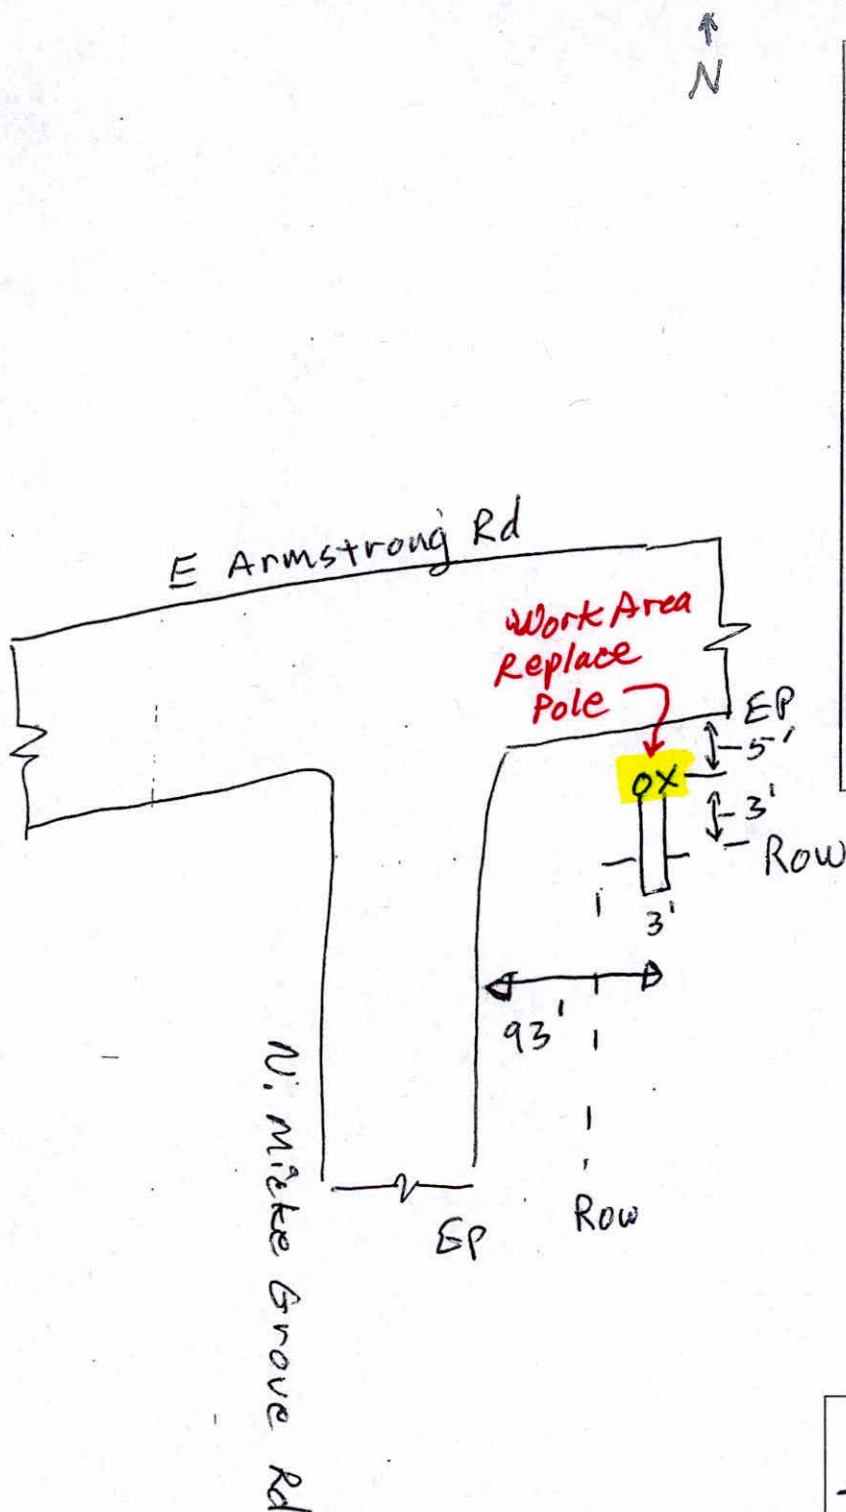 N
E Armstrong Rd
Work Area
Replace
Pole
EP
5'
OX
3'
Row
3'
93'
N. Micke Grove Rd
EP
Row